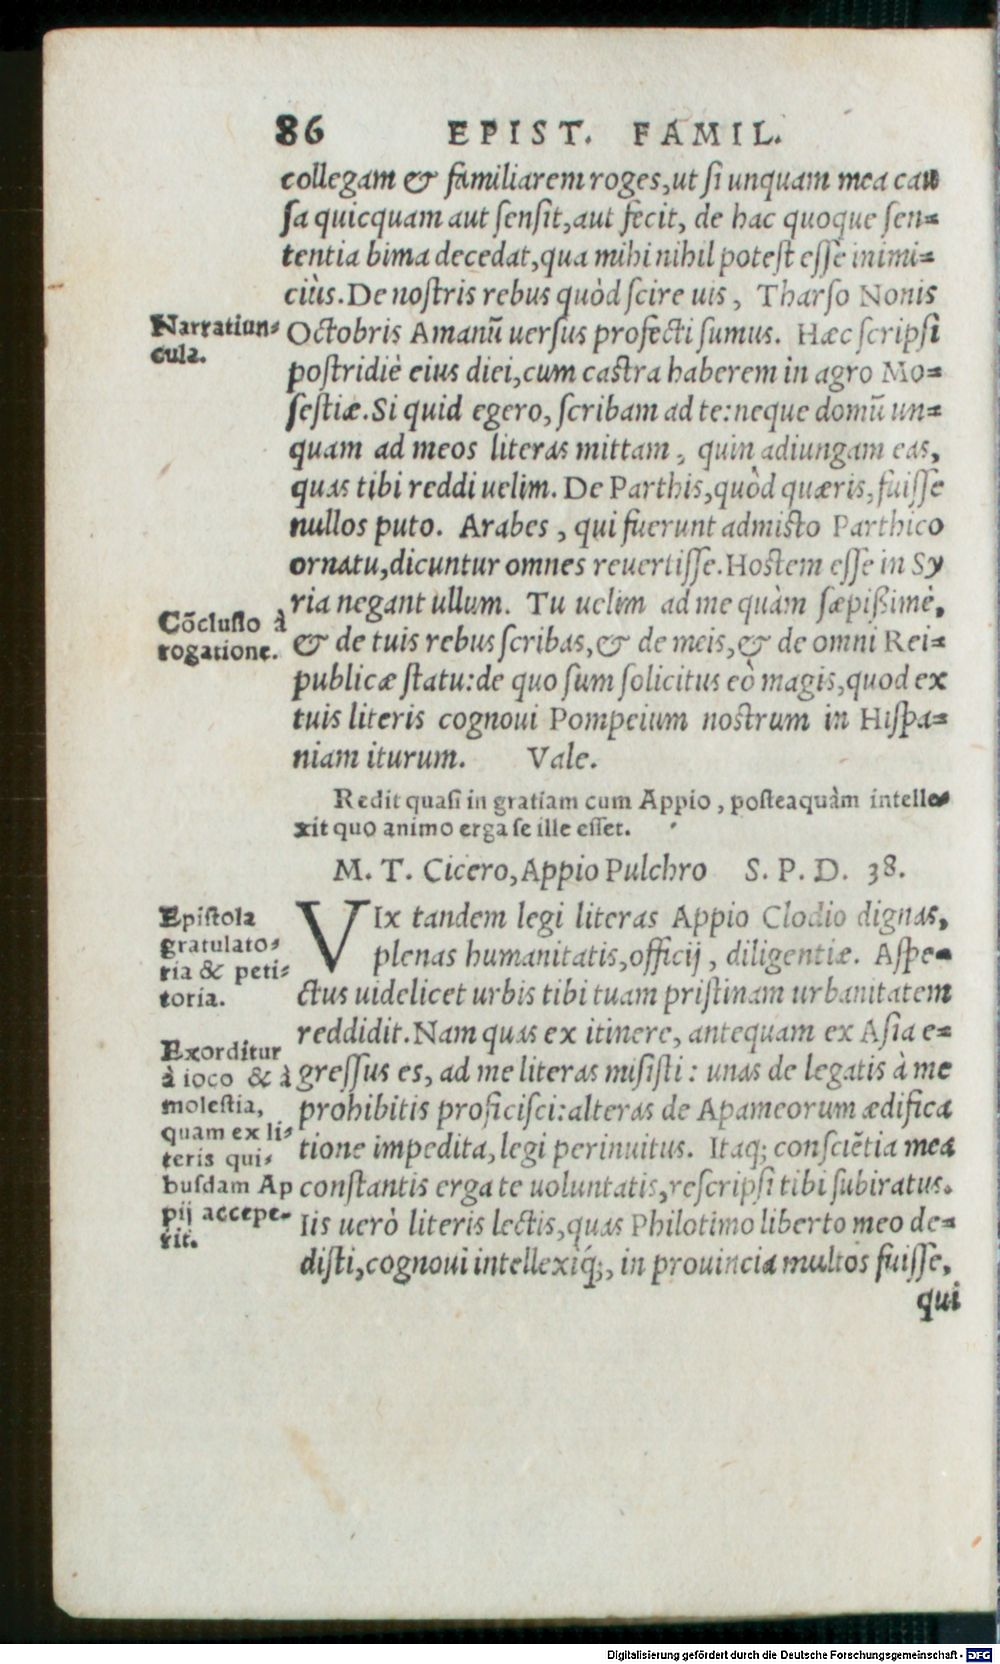 86 EPIST. FAMIL.
collegam & familiarem roges,ut si unquam mea cau
sa quicquam aut sensit,aut fecit, de hac quoque sen=
tentia bima decedat,qua mihi nihil potest esse inimi=
cius.De nostris rebus quòd scire uis, Tharso Nonis
Narratiun=
cula.
Octobris Amanū uersus profecti sumus. Hæc scripsi
postridiè eius diei,cum castra haberem in agro Mo=
sestiæ.Si quid egero, scribam ad te:neque domū un=
quam ad meos literas mittam, quin adiungam eas,
quas tibi reddi uelim. De Parthis,quòd quæris,fuisse
nullos puto. Arabes, qui fuerunt admisto Parthico
ornatu,dicuntur omnes reuertisse.Hostem esse in Sy
ria negant ullum. Tu uelim ad me quàm sæpißimè,
Cōclusio à
rogatione.
& de tuis rebus scribas,& de meis,& de omni Rei=
publicæ statu:de quo sum solicitus eò magis,quod ex
tuis literis cognoui Pompeium nostrum in Hispa=
niam iturum. Vale.
Redit quasi in gratiam cum Appio, posteaquàm intelle=
xit quo animo erga se ille esset.
M. T. Cicero,Appio Pulchro S. P. D. 38.
Epistola
gratulato=
ria & peti=
toria.
VIx tandem legi literas Appio Clodio dignas,
plenas humanitatis,officij, diligentiæ. Aspe=
ctus uidelicet urbis tibi tuam pristinam urbanitatem
reddidit.Nam quas ex itinere, antequam ex Asia e=
Exorditur
à ioco & à
molestia,
quam ex li=
teris qui=
busdam Ap
pij accepe=
rit.
gressus es, ad me literas misisti: unas de legatis à me
prohibitis proficisci:alteras de Apameorum ædifica
tione impedita,legi perinuitus. Itaq; consciētia mea
constantis erga te uoluntatis,rescripsi tibi subiratus.
Iis uerò literis lectis,quas Philotimo liberto meo de=
disti,cognoui intellexiq́;, in prouincia multos fuisse,
qui
Digitalisierung gefördert durch die Deutsche Forschungsgemeinschaft - DFG